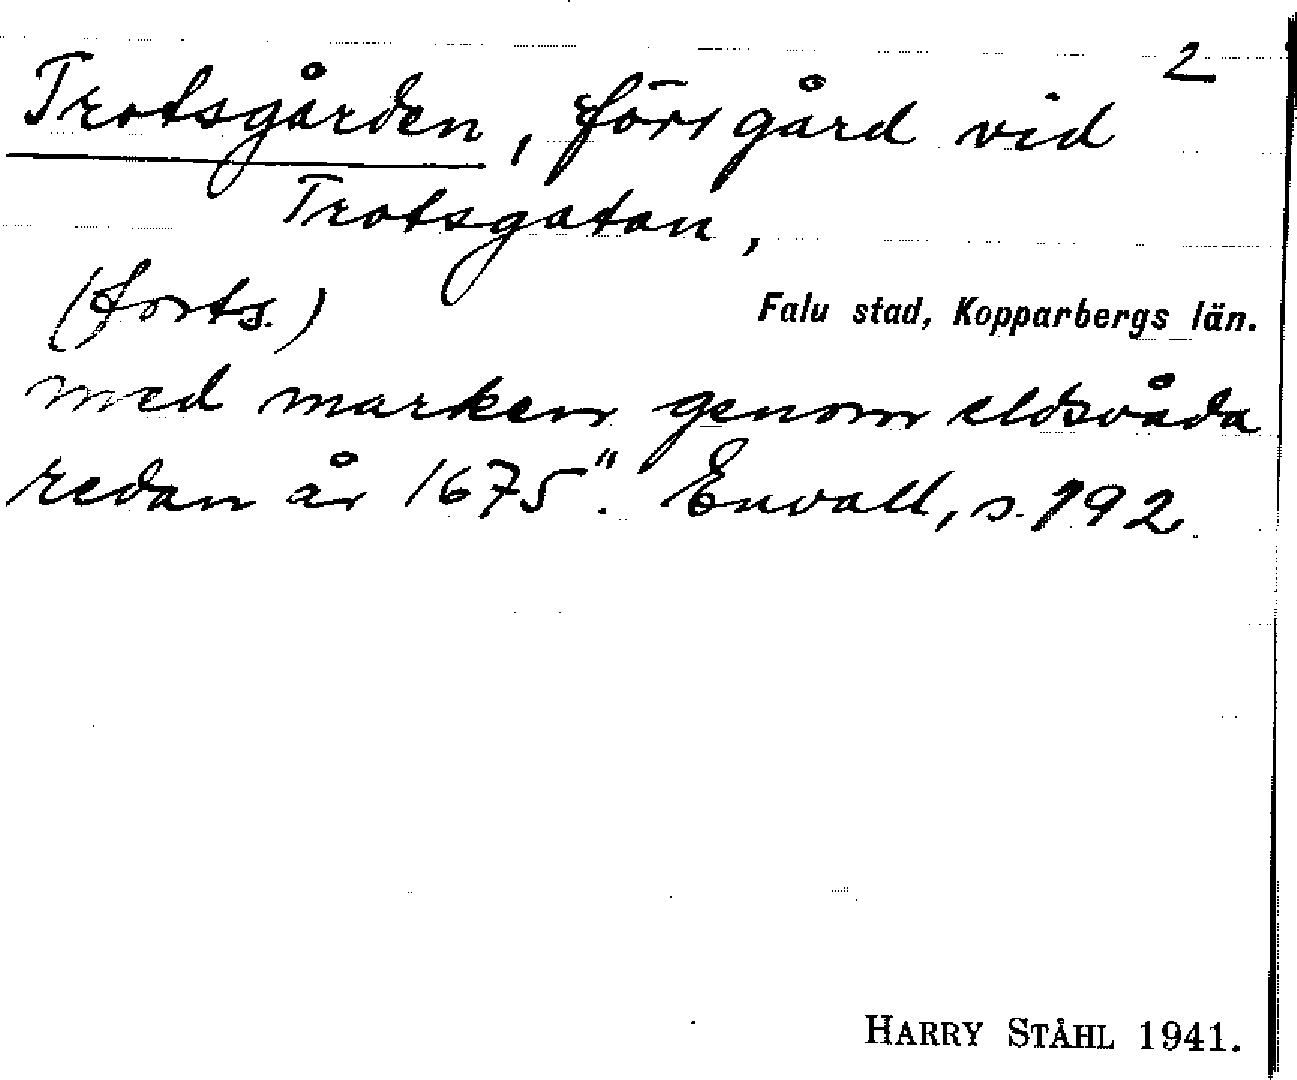 2
Trotsgården, förs gård vid
Trotsgatan,
(forts.)
Falu stad, Kopparbergs län.
med marken genom eldsvåda
redan år 1675". Envall, s. 192
HARRY STÅHL 1941.